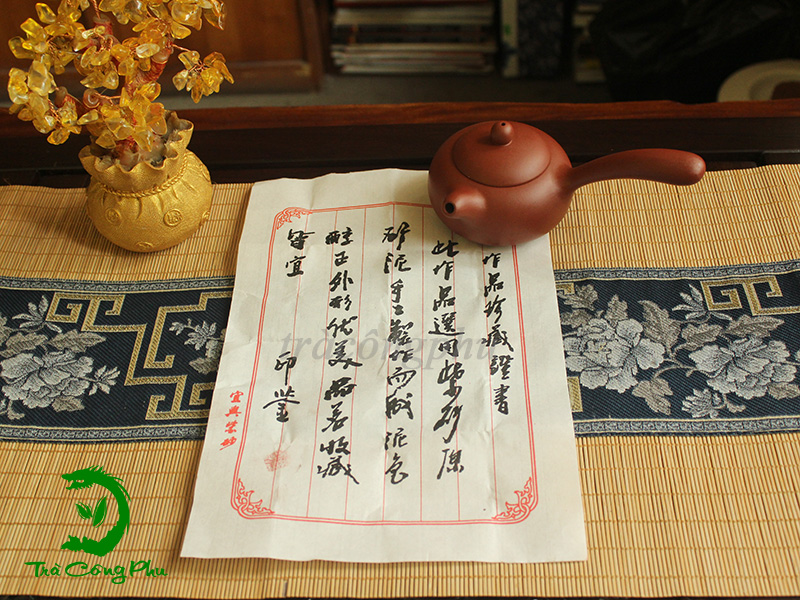 作品珍藏證書
此作品選用紫砂原
砂泥手工製作而成泥色
醇正外形优美品茗收藏
皆宜
印鉴
宜興紫砂
trà công phu
Trà Công Phu